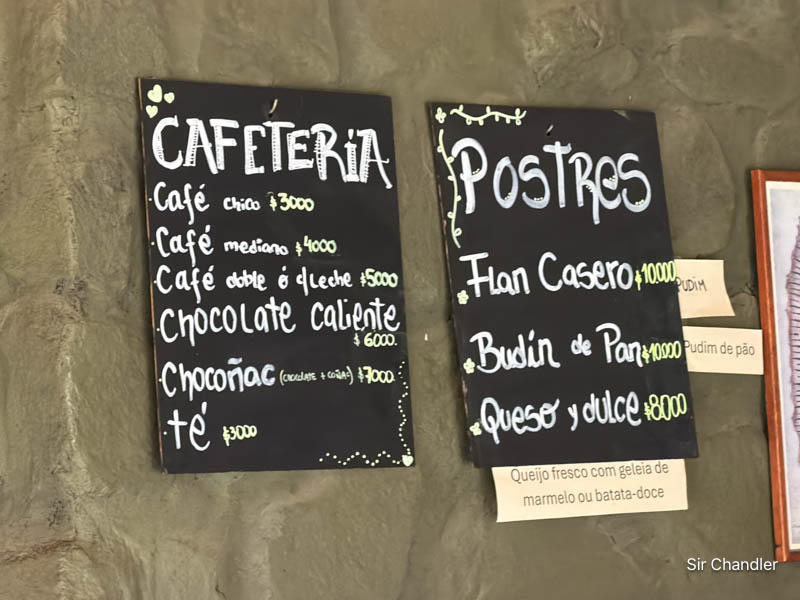 CAFETERIA
Café chico $3000
Café mediano $4000
Café doble ó c/leche $5000
Chocolate caliente
$6000.
Chocoñac (chocolate + coñac) $7000.
té $3000
Postres
Flan Casero $10.000
PUDIM
Budín de Pan $10.000
Pudim de pão
Queso y dulce $8000
Queijo fresco com geleia de
marmelo ou batata-doce
Sir Chandler